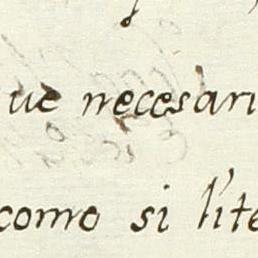 ue necesari
como si lite